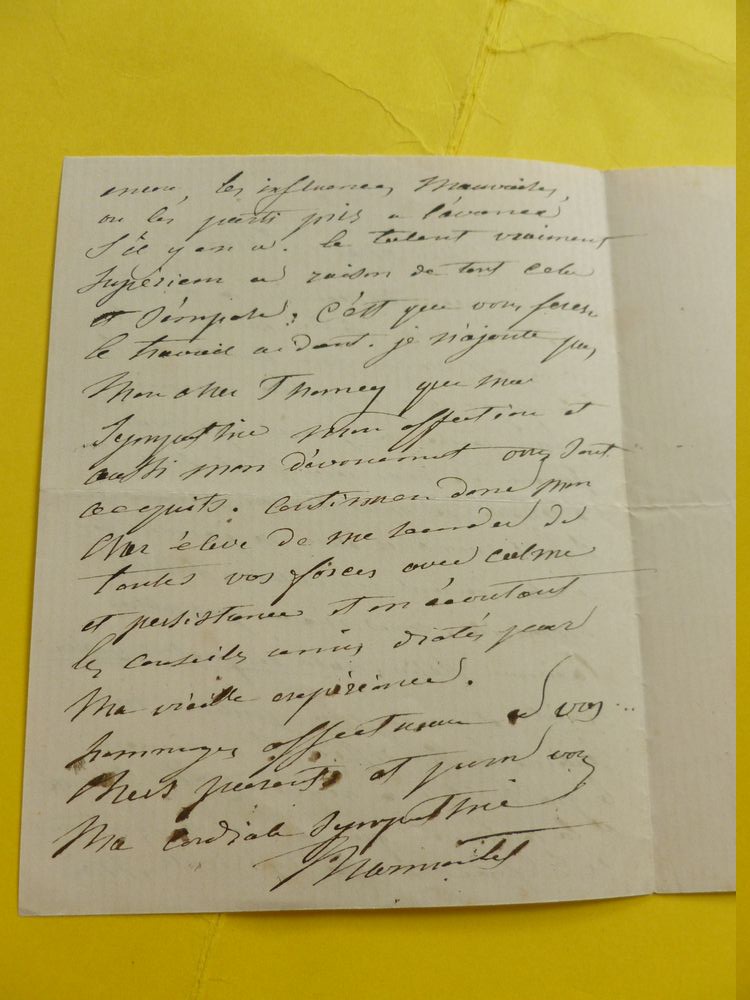 encore, les influences mauvaises,
ou les parti pris a l'avance
s'il y en a. le talent vraiment
Supérieur a raison de tout cela
et s'impose; c'est que vous ferez
le travail aidant. je n'ajoute pas,
Mon cher Thomey que ma
Sympathie mon affection et
aussi mon dévouement vous sont
acquits. Continuez donc mon
cher élève de me seconder de
toutes vos forces avec calme
et persistance et en écoutant
les conseils amis dictés par
Ma vieille expérience.
hommages affectueux a vos
chers parents et pour vous
Ma cordiale Sympathie
Marmontel